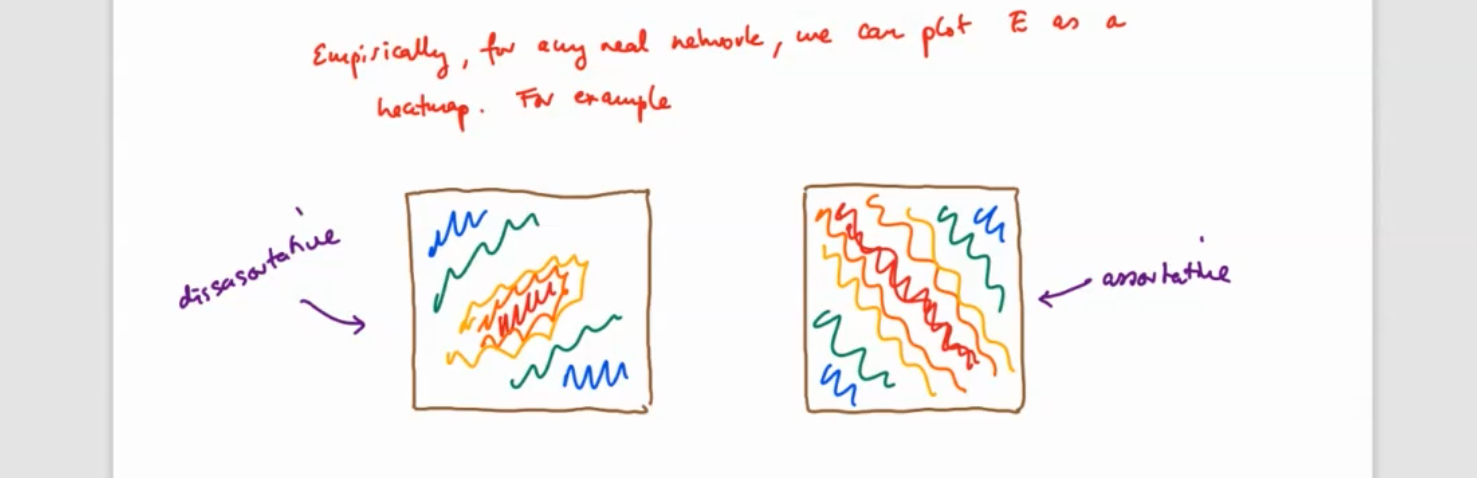 Empirically, for any real network, we can plot E as a
heatmap. For example
dissasortative
assortative